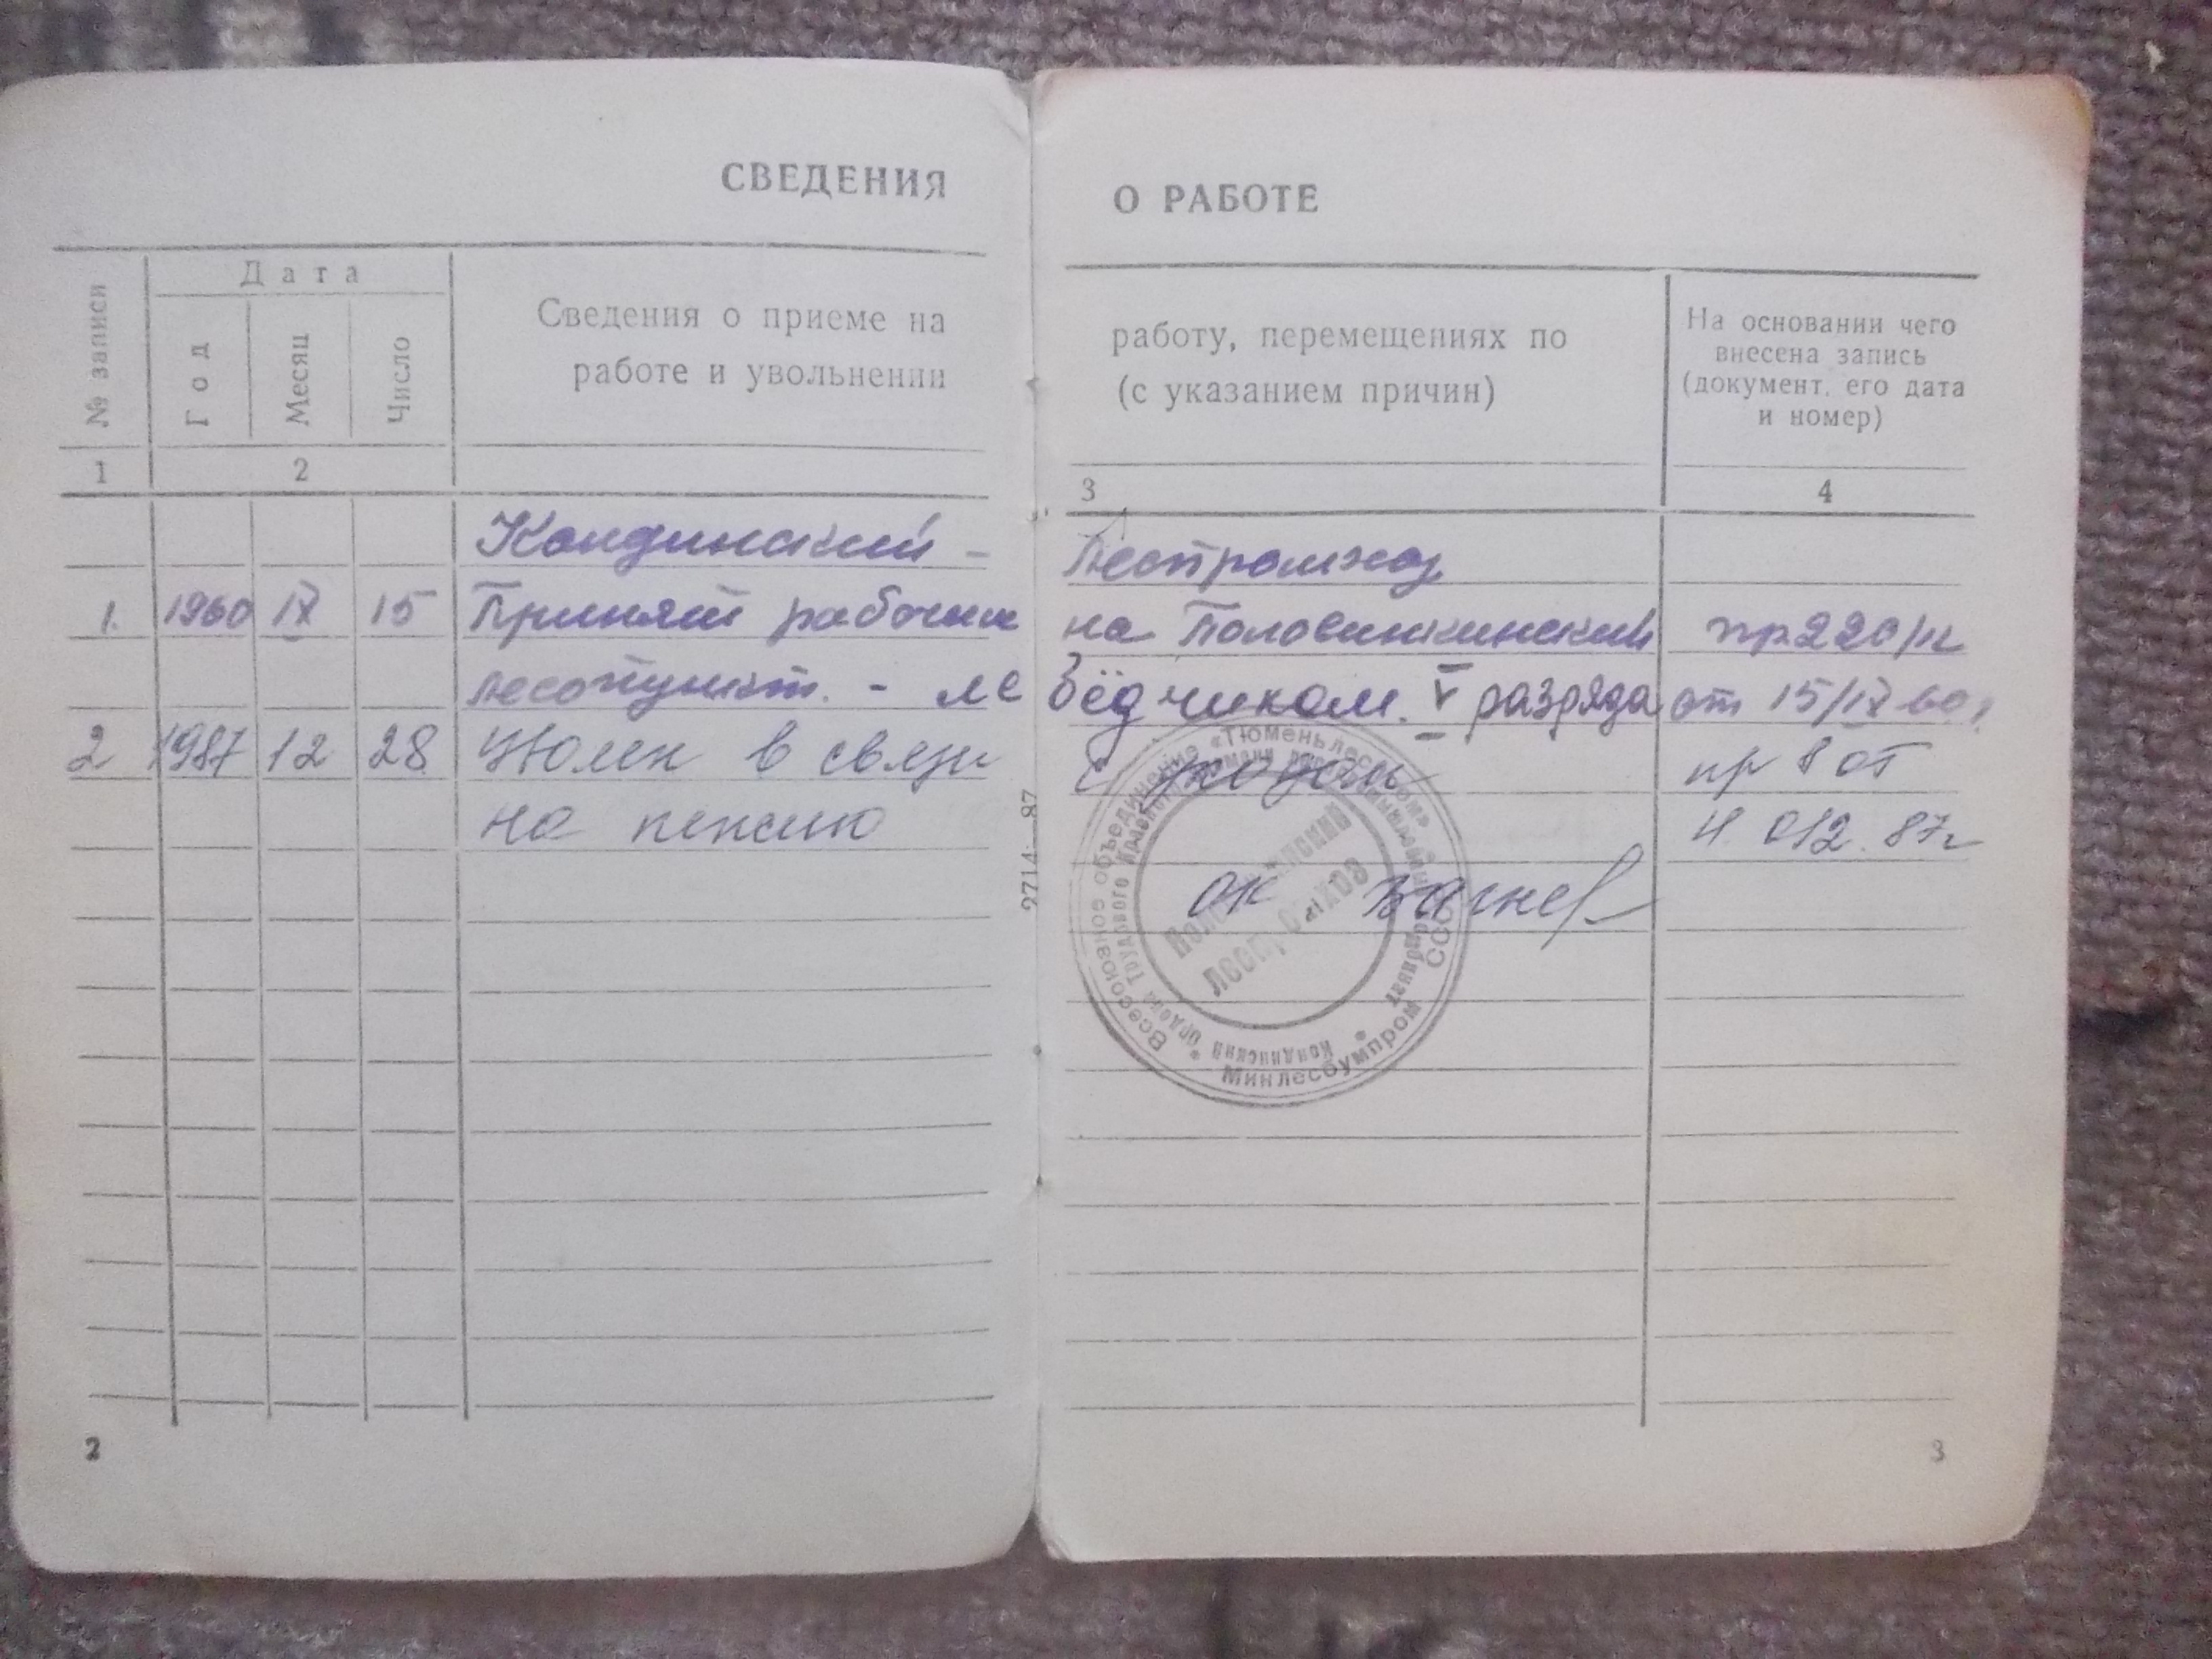 СВЕДЕНИЯ О РАБОТЕ
№ записи
Дата
Год
Месяц
Число
Сведения о приеме на работу, перемещениях по
работе и увольнении (с указанием причин)
На основании чего
внесена запись
(документ, его дата
и номер)
1 2 3 4
Кондинский - Леспромхоз
1. 1960 IX 15 Принят рабочим на Половинкинский пр 220/к
лесопункт. - лебёдчиком. V разряда от 15/IX 60г
2 1987 12 28 Уволен в связи с уходом пр 8 от
на пенсию 012.87г
ОК Вагнер
Всесоюзное объединение «Тюменьлеспром»
Минлесбумпром СССР
Кондинский ордена Трудового Красного Знамени
леспромхоз
2714. 87
2
3